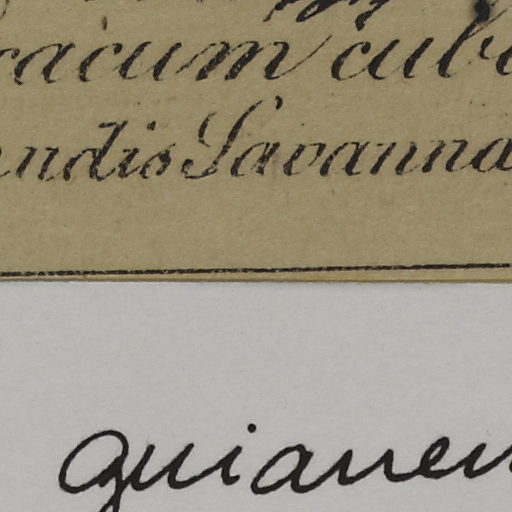 racum cub
ndis Savanna
guianen